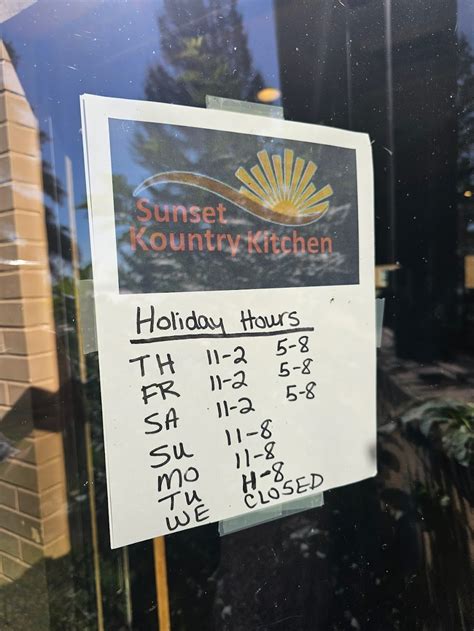 Sunset
Kountry Kitchen
Holiday Hours
TH 11-2 5-8
FR 11-2 5-8
SA 11-2 5-8
SU 11-8
MO 11-8
TU 11-8
WE CLOSED